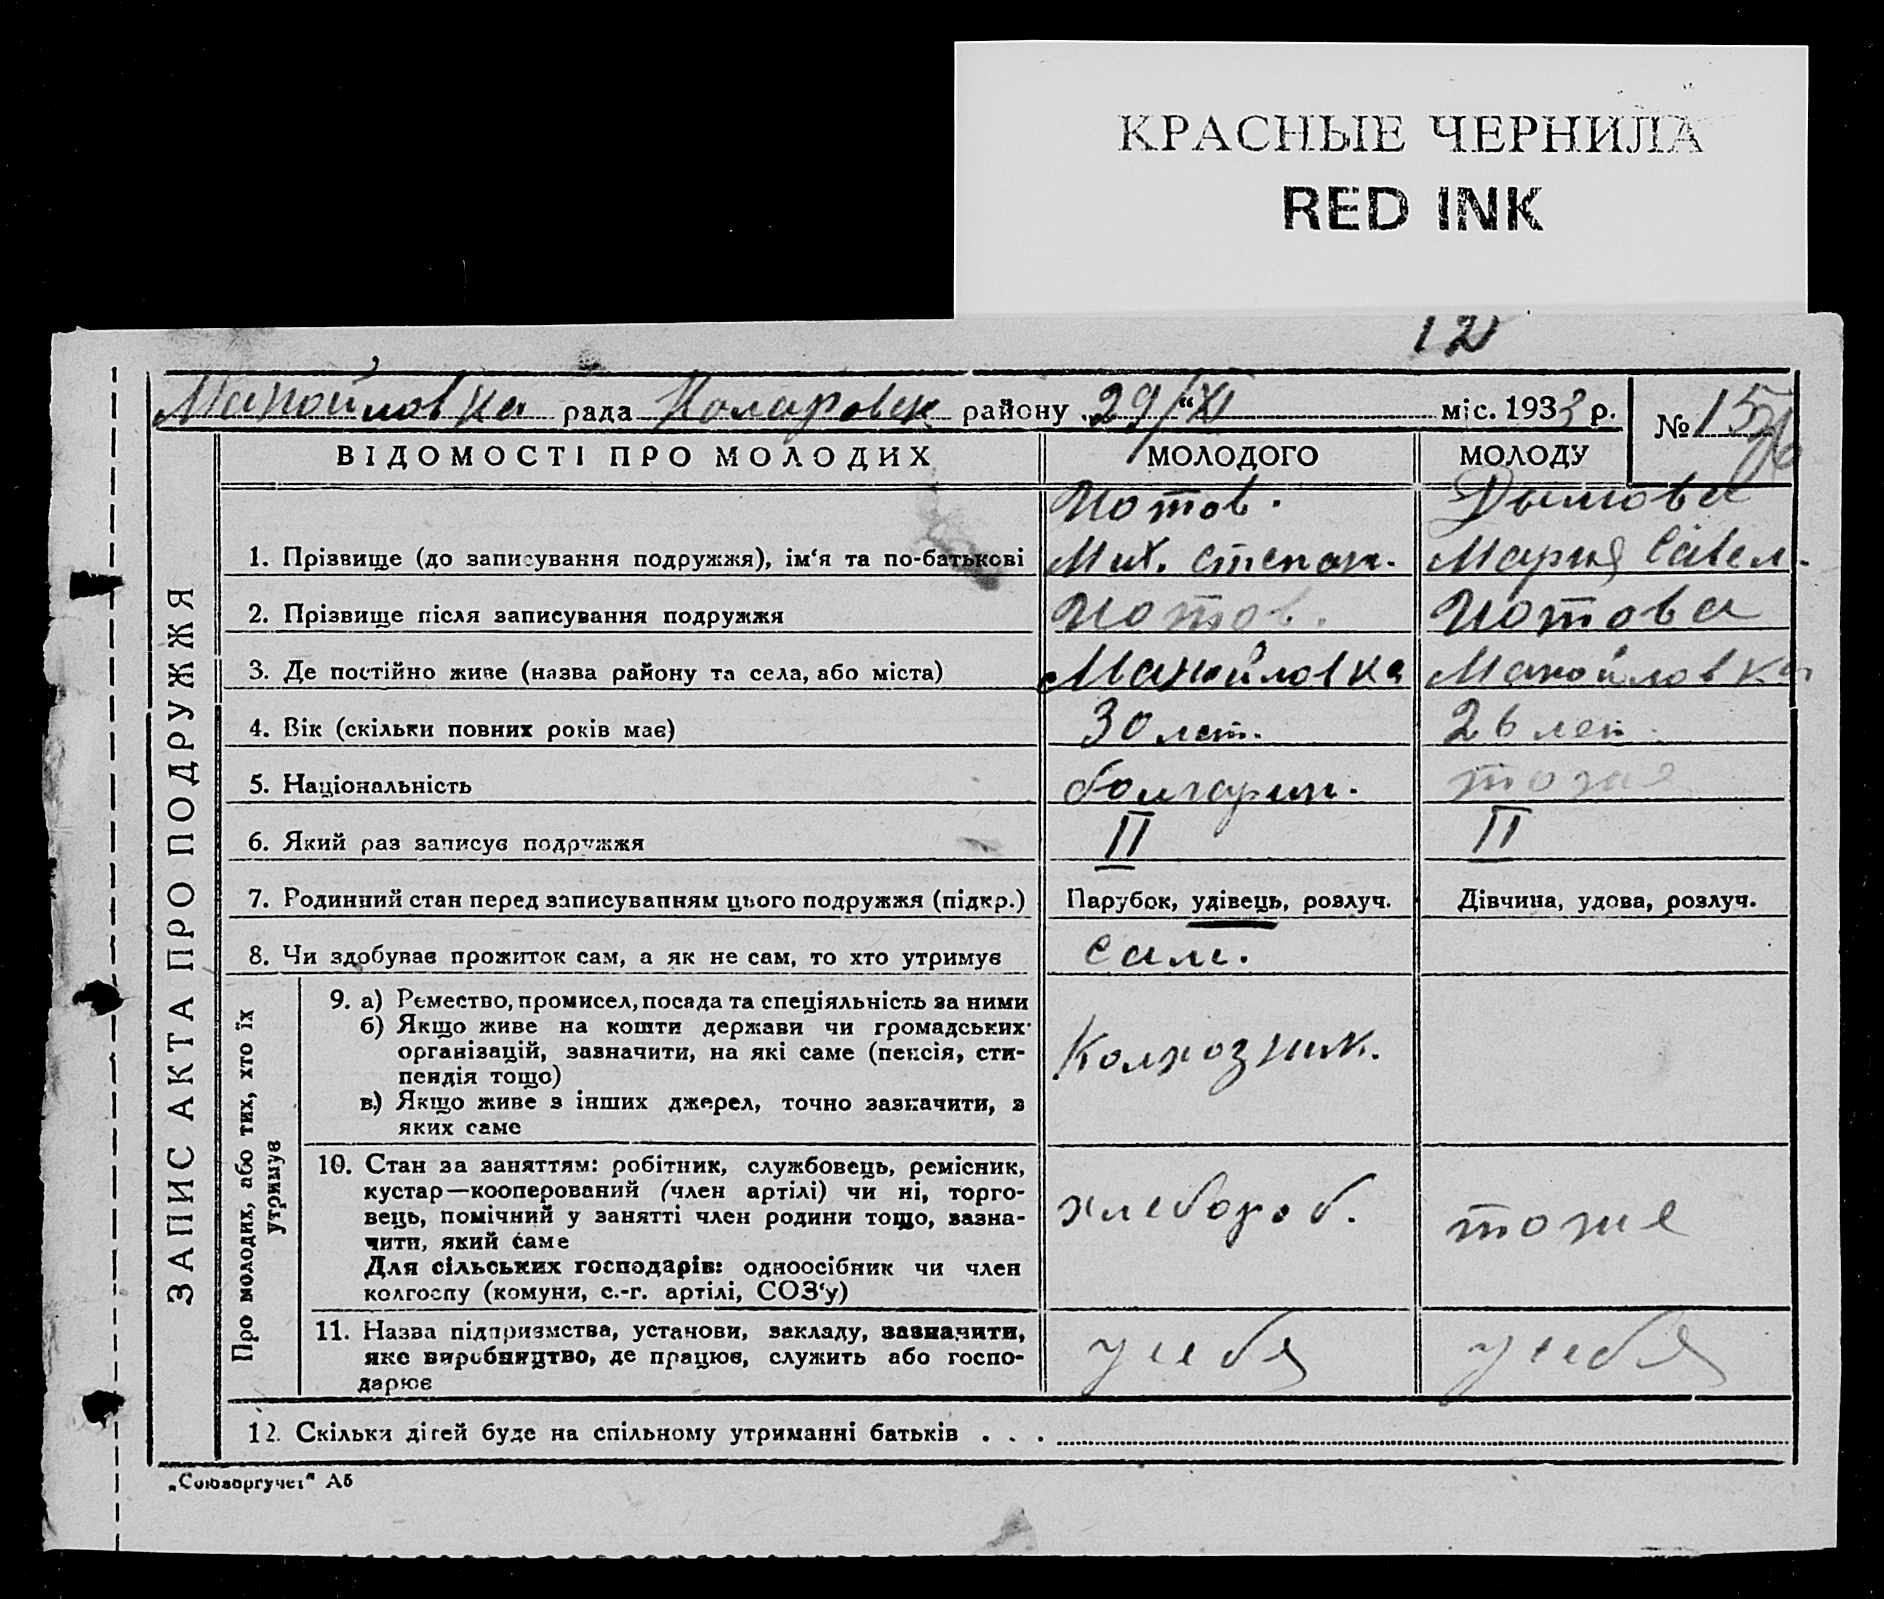 КРАСНЫЕ ЧЕРНИЛА
RED INK
12
Манойловка рада Коларовск району „29/XI“ міс. 1933 р.
№ 15
ЗАПИС АКТА ПРО ПОДРУЖЖЯ
ВІДОМОСТІ ПРО МОЛОДИХ МОЛОДОГО МОЛОДУ
Иотов. Дымова
1. Прізвище (до записування подружжя), ім‘я та по-батькові Мих. Степан. Мария Савел.
2. Прізвище після записування подружжя Иотов. Иотова
3. Де постійно живе (назва району та села, або міста) Манойловка Манойловка
4. Вік (скільки повних років має) 30 лет. 26 лет.
5. Національність болгарин. тоже
6. Який раз записує подружжя II II
7. Родинний стан перед записуванням цього подружжя (підкр.) Парубок, удівець, розлуч. Дівчина, удова, розлуч.
8. Чи здобуває прожиток сам, а як не сам, то хто утримує сам.
Про молодих, або тих, хто їх утримує
9. а) Ремество, промисел, посада та спеціяльність за ними
б) Якщо живе на кошти держави чи громадських
організацій, зазначити, на які саме (пенсія, сти-
пендія тощо)
в) Якщо живе з інших джерел, точно зазначити, з
яких саме
Колхозник.
10. Стан за заняттям: робітник, службовець, ремісник,
кустар—кооперований (член артілі) чи ні, торго-
вець, помічний у занятті член родини тощо, зазна-
чити, який саме
Для сільських господарів: одноосібник чи член
колгоспу (комуни, с.-г. артілі, СОЗ‘у)
хлебороб. тоже
11. Назва підприємства, установи, закладу, зазначити,
яке виробництво, де працює, служить або госпо-
дарює
у себя у себя
12. Скільки дітей буде на спільному утриманні батьків . . .
„Союзоргучет“ А5